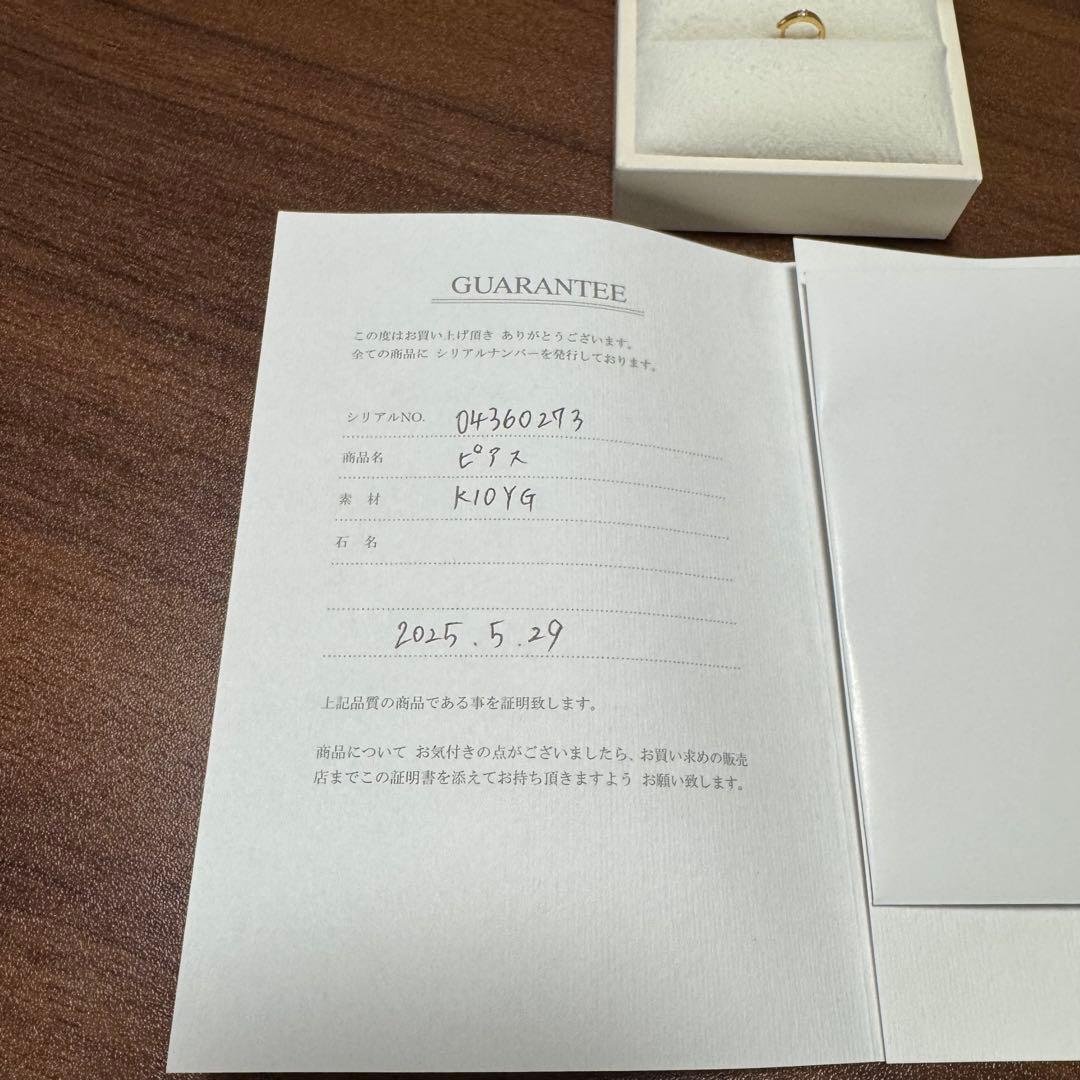 GUARANTEE
この度はお買い上げ頂き ありがとうございます。
全ての商品に シリアルナンバーを発行しております。
シリアルNO. 04360273
商品名 ピアス
素 材 K10YG
石 名
2025.5.29
上記品質の商品である事を証明致します。
商品について お気付きの点がございましたら、お買い求めの販売
店までこの証明書を添えてお持ち頂きますよう お願い致します。